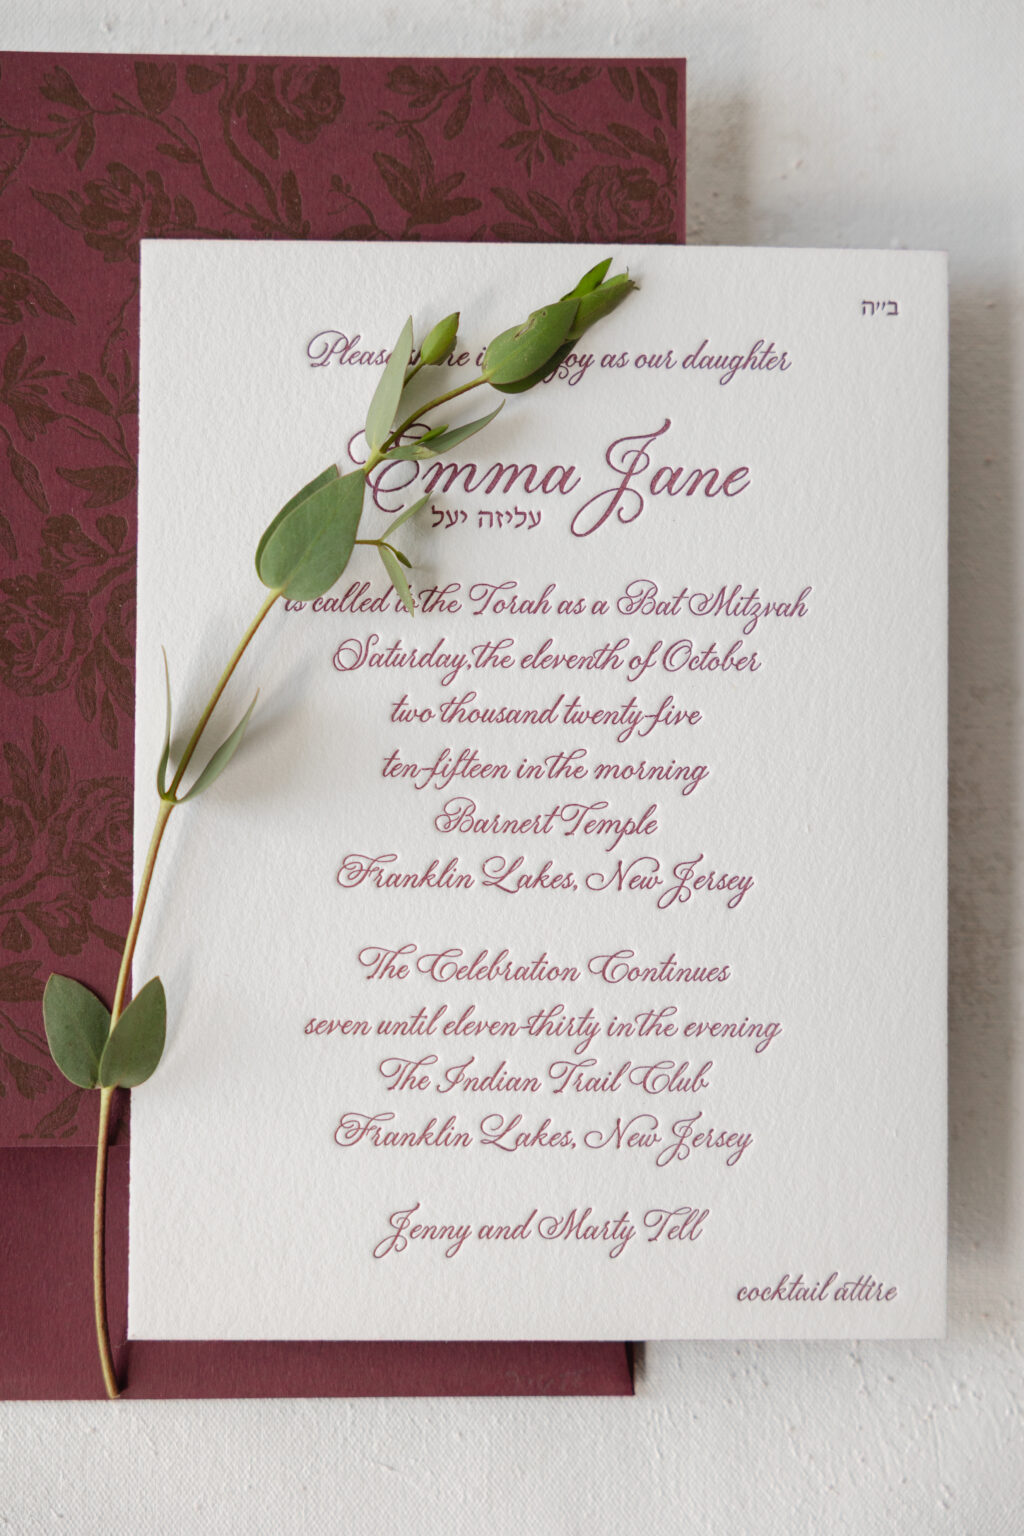 בייה
Please share in joy as our daughter
Emma Jane
עליזה יעל
is called to the Torah as a Bat Mitzvah
Saturday, the eleventh of October
two thousand twenty-five
ten-fifteen in the morning
Barnert Temple
Franklin Lakes, New Jersey
The Celebration Continues
seven until eleven-thirty in the evening
The Indian Trail Club
Franklin Lakes, New Jersey
Jenny and Marty Tell
cocktail attire